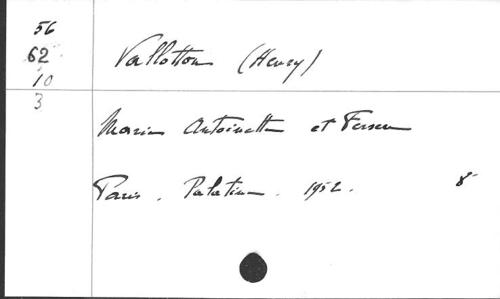 56
62
10
3
Vallotton (Henry)
Marie Antoinette et Fersen
Paris. Palatine. 1952. 8°